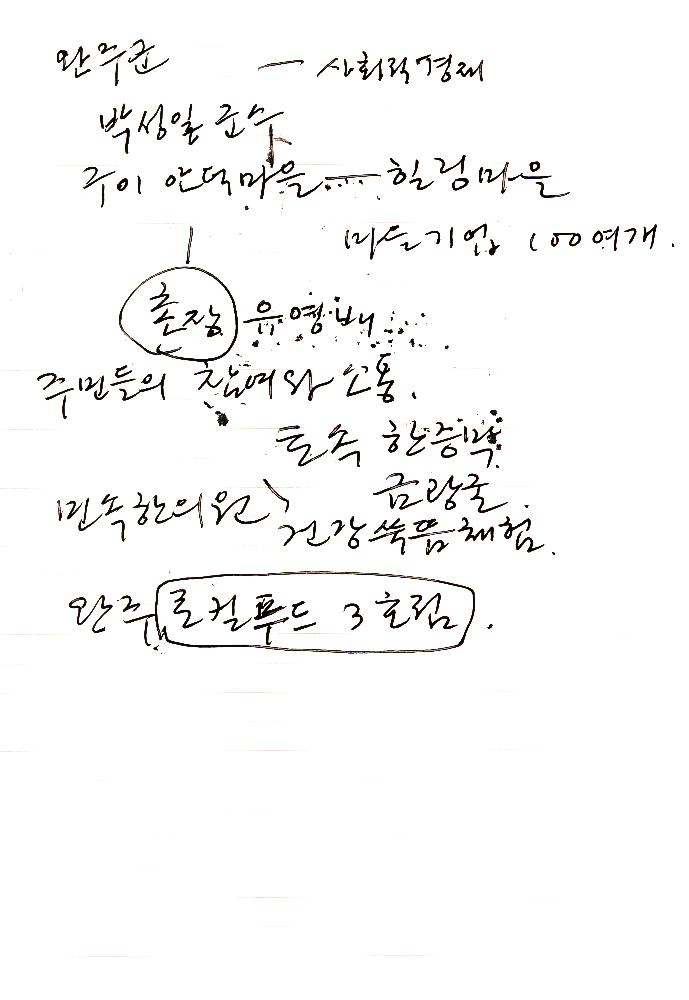 완주군 — 사회적경제
박성일 군수
구이 안덕마을 .... — 힐링마을
마을기업 100여개.
촌장 유영배
주민들의 참여와 소통.
토속 한증막
금광굴
민속한의원 건강쑥뜸체험.
완주 로컬푸드 3호점.